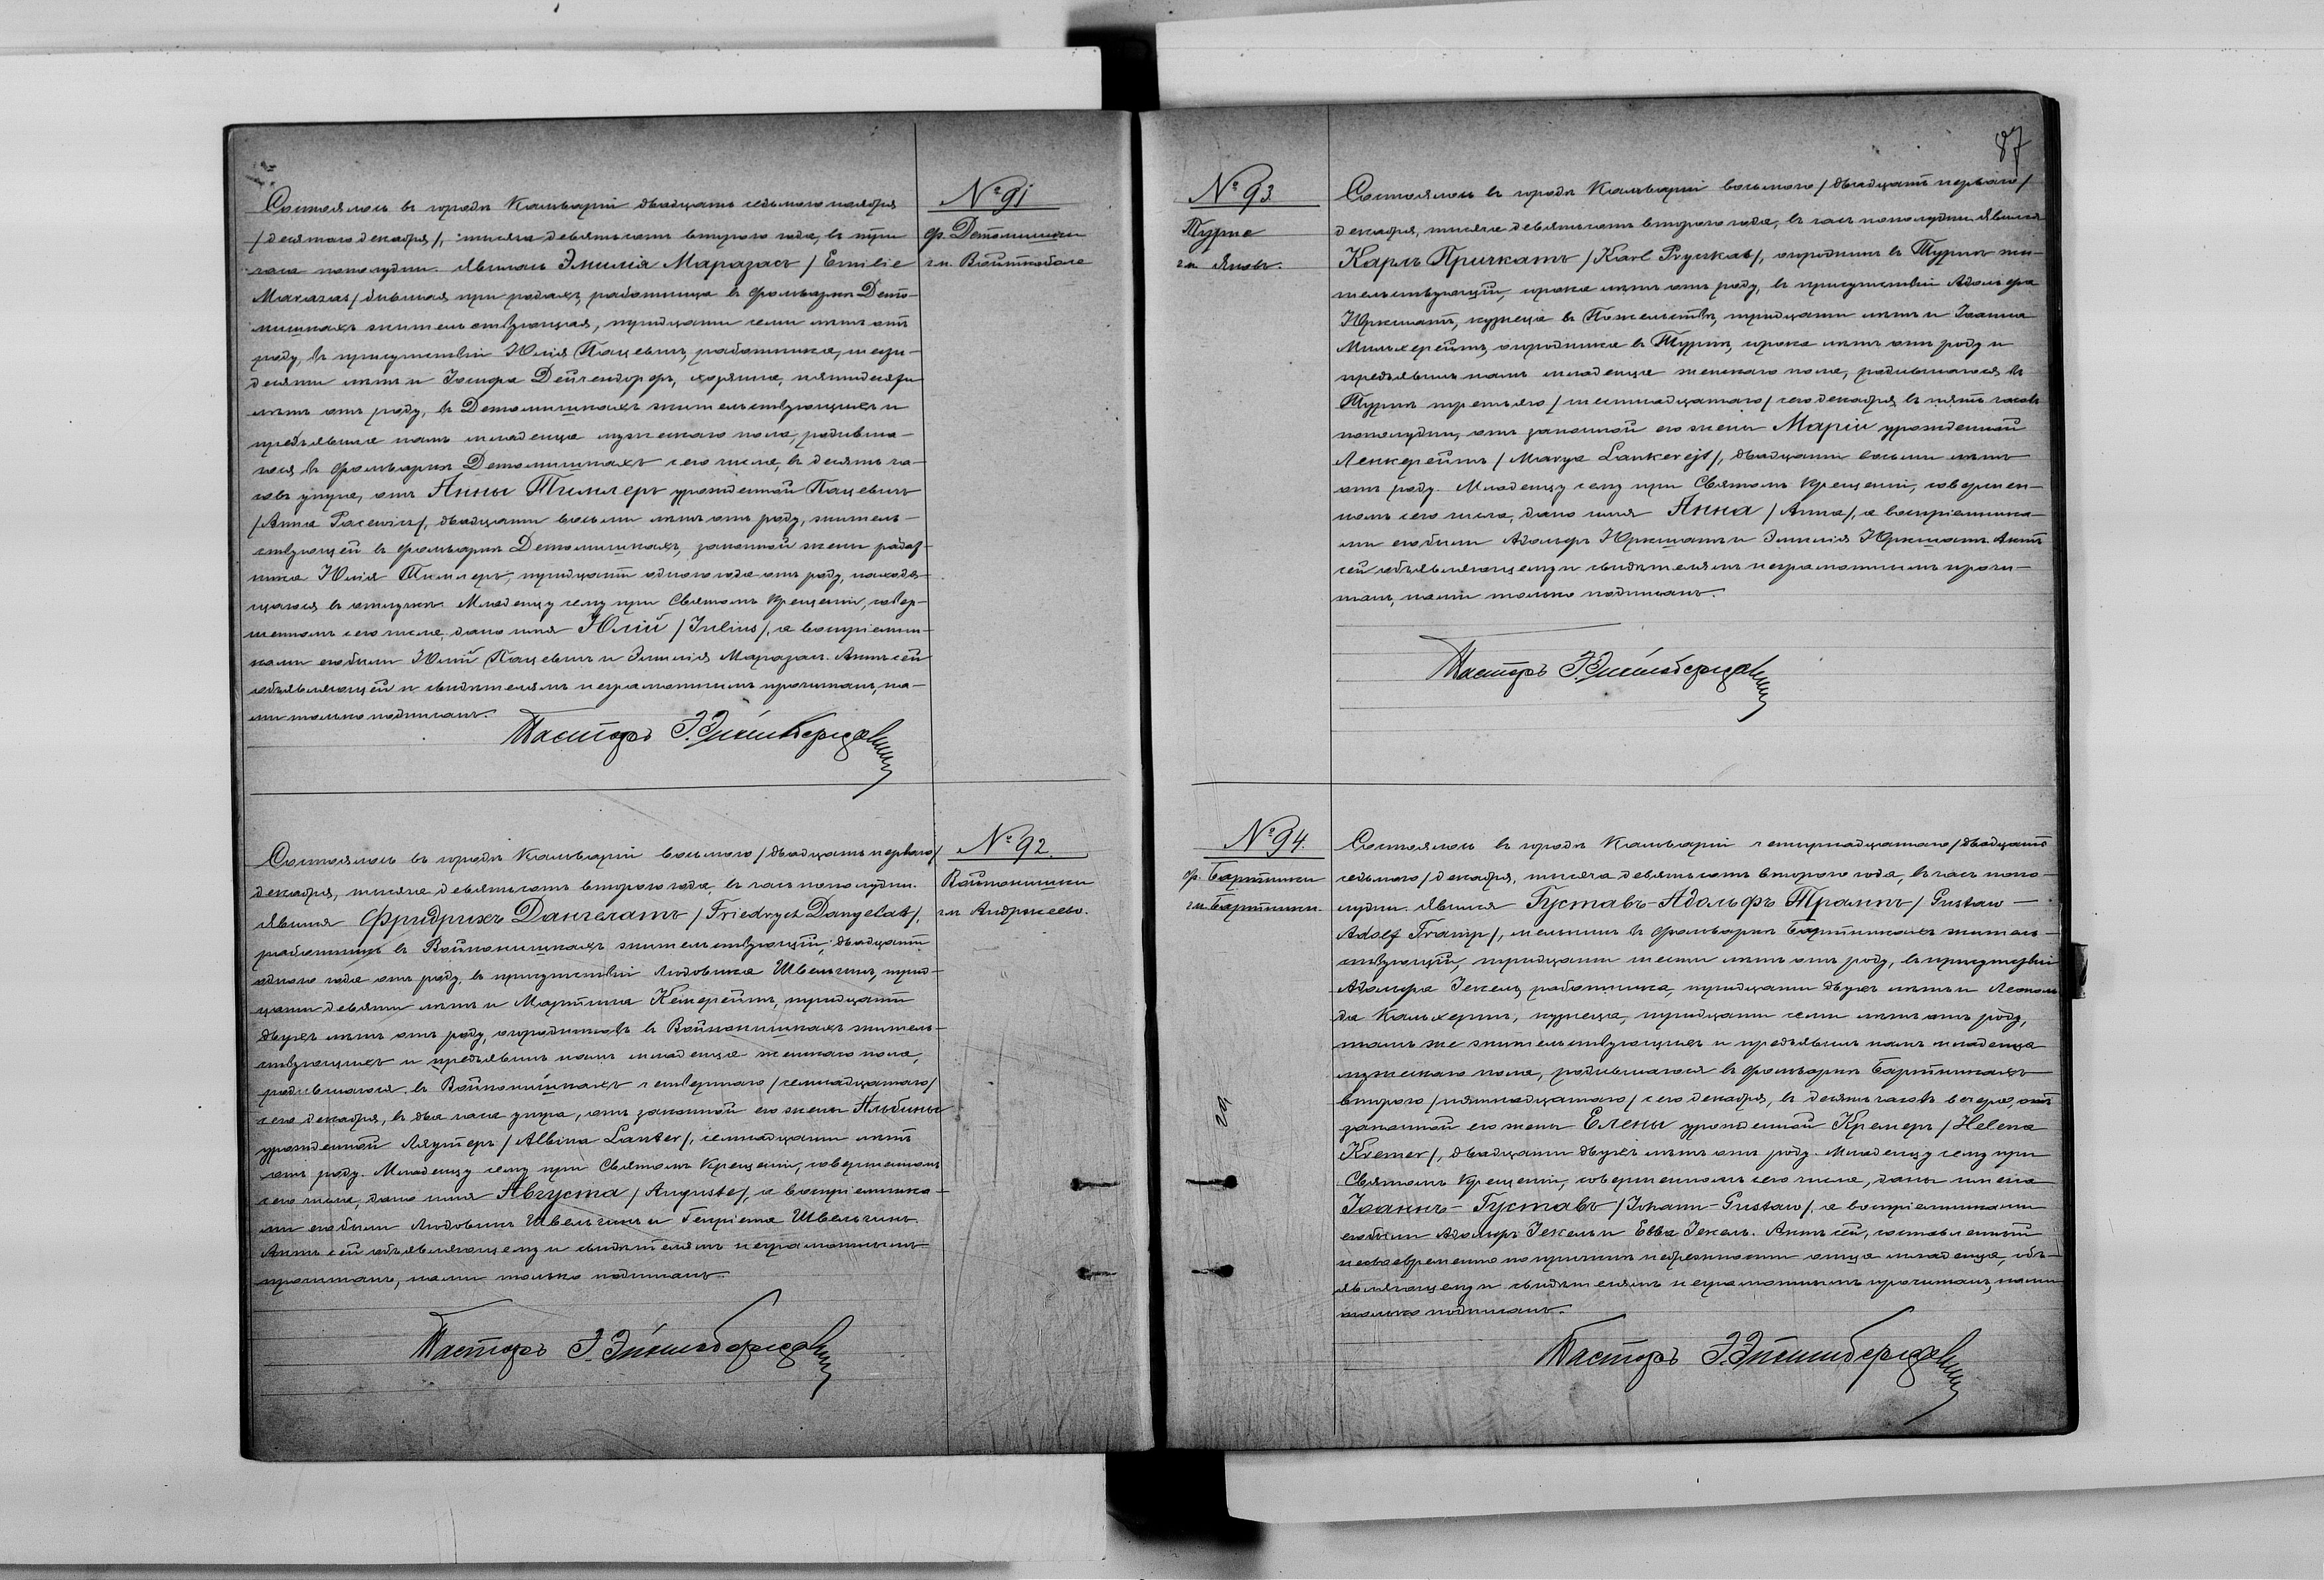 № 91
ф. Детомишки
гм. Войткобола
Состоялось въ городѣ Кальваріи двадцать седьмого ноября
/десятого декабря/, тысяча девятьсотъ второго года, въ три
часа пополудни. Явилась Эмилія Маразасъ /Emilie
Marazas/ бывшая при родахъ, работница въ фольваркѣ Дето-
мишкахъ жительствующая, тридцати семи лѣтъ отъ
роду, въ присутствіи Юлія Пацевичъ, работника, шести-
десяти лѣтъ и Іосифа Дейчендорфъ, пятидесяти
лѣтъ отъ роду, въ Детомишкахъ жительствующихъ и
предъявила намъ младенца мужескаго пола, родивша-
гося въ фольваркѣ Детомишкахъ сего числа, въ десять ча-
совъ утра, отъ Анны Тимлеръ урожденной Пацевичъ
/Anna Pacewicz/, двадцати восьми лѣтъ отъ роду, житель-
ствующей въ фольваркѣ Детомишкахъ, законной жены работ-
ника Юлія Тимлеръ, тридцать одного года отъ роду, находя-
щагося въ отлучкѣ. Младенцу сему при Святомъ Крещеніи, совер-
шенномъ сего числа, дано имя Юлій /Julius/, а воспріемни-
ками его были Юлій Пацевичъ и Эмилія Маразасъ. Актъ сей
объявляющей и свидѣтелямъ неграмотнымъ прочитанъ, на-
ми только подписанъ.
Пасторъ Э.
№ 92.
Войпонишки
гм. Андржеево.
Состоялось въ городѣ Кальваріи восьмого /двадцать перваго/
декабря, тысяча девятьсотъ второго года, въ часъ пополудни.
Явился Фридрихъ Дангелатъ /Friedrych Dangelat/,
работникъ въ Войпонишкахъ жительствующій, двадцать
одного года отъ роду, въ присутствіи Людовика Швельгинъ, трид-
цати девяти лѣтъ и Мартина Кемерейтъ, тридцати
двухъ лѣтъ отъ роду, огородниковъ въ Войпонишкахъ житель-
ствующихъ и предъявилъ намъ младенца женскаго пола,
родившагося въ Войпонишкахъ четвертаго /семнадцатаго/
сего декабря, въ два часа утра, отъ законной его жены Альбины
урожденной Ляутеръ /Albina Lauter/, семнадцати лѣтъ
отъ роду. Младенцу сему при Святомъ Крещеніи, совершенномъ
сего числа, дано имя Августа /Auguste/, а воспріемника-
ми его были Людовикъ Швельгинъ и Генріета Швельгинъ.
Актъ сей объявляющему и свидѣтелямъ неграмотнымъ
прочитанъ, нами только подписанъ.
Пасторъ Э.
87
№ 93
Турпе
гм. Яновъ.
Состоялось въ городѣ Кальваріи восьмого /двадцать перваго/
декабря, тысяча девятьсотъ второго года, въ часъ пополудни. Явился
Карлъ Причкатъ /Karl Pryczkat/, огородникъ въ Турпѣ жи-
тельствующій, сорока лѣтъ отъ роду, въ присутствіи Адольфа
Юркшатъ, кузнеца въ тридцати лѣтъ и Іоанна
огородника въ Турпѣ, сорока лѣтъ отъ роду и
предъявилъ намъ младенца женскаго пола, родившагося въ
Турпѣ третьяго /шестнадцатаго/ сего декабря, въ пять часовъ
пополудни, отъ законной его жены Маріи урожденной
Ленкерейтъ /Marya Lankerejt/, двадцати восьми лѣтъ
отъ роду. Младенцу сему при Святомъ Крещеніи, совершен-
номъ сего числа, дано имя Анна /Anna/, а воспріемника-
ми его были Адольфъ Юркшатъ и Эмилія Юркшатъ. Актъ
сей объявляющему и свидѣтелямъ неграмотнымъ прочи-
танъ, нами только подписанъ.
Пасторъ Э.
№ 94.
ф. Бартники
гм. Бартники.
Состоялось въ городѣ Кальваріи четырнадцатаго /двадцать
седьмого/ декабря, тысяча девятьсотъ второго года, въ часъ попо-
лудни. Явился Густавъ-Адольфъ Трампъ /Gustaw-
Adolf Tramp/, мельникъ въ фольваркѣ Бартникахъ житель-
ствующій, тридцати шести лѣтъ отъ роду, въ присутствіи
Адольфа Іекель, работника, тридцати двухъ лѣтъ и Леополь-
да Кальхертъ, кузнеца, тридцати семи лѣтъ отъ роду,
тамъ же жительствующихъ и предъявилъ намъ младенца
мужескаго пола, родившагося въ фольваркѣ Бартникахъ
второго /пятнадцатаго/ сего декабря, въ десять часовъ вечера, отъ
законной его жены Елены урожденной Кремеръ /Helena
Kremer/, двадцати двухъ лѣтъ отъ роду. Младенцу сему при
Святомъ Крещеніи, совершенномъ сего числа, даны имена
Іоаннъ-Густавъ /Johann-Gustaw/, а воспріемниками
его были Адольфъ Іекель и Евва Іекель. Актъ сей, составленный
несвоевременно по причинѣ небрежности отца младенца, объ-
являющему и свидѣтелямъ неграмотнымъ прочитанъ, нами
только подписанъ.
Пасторъ Э.